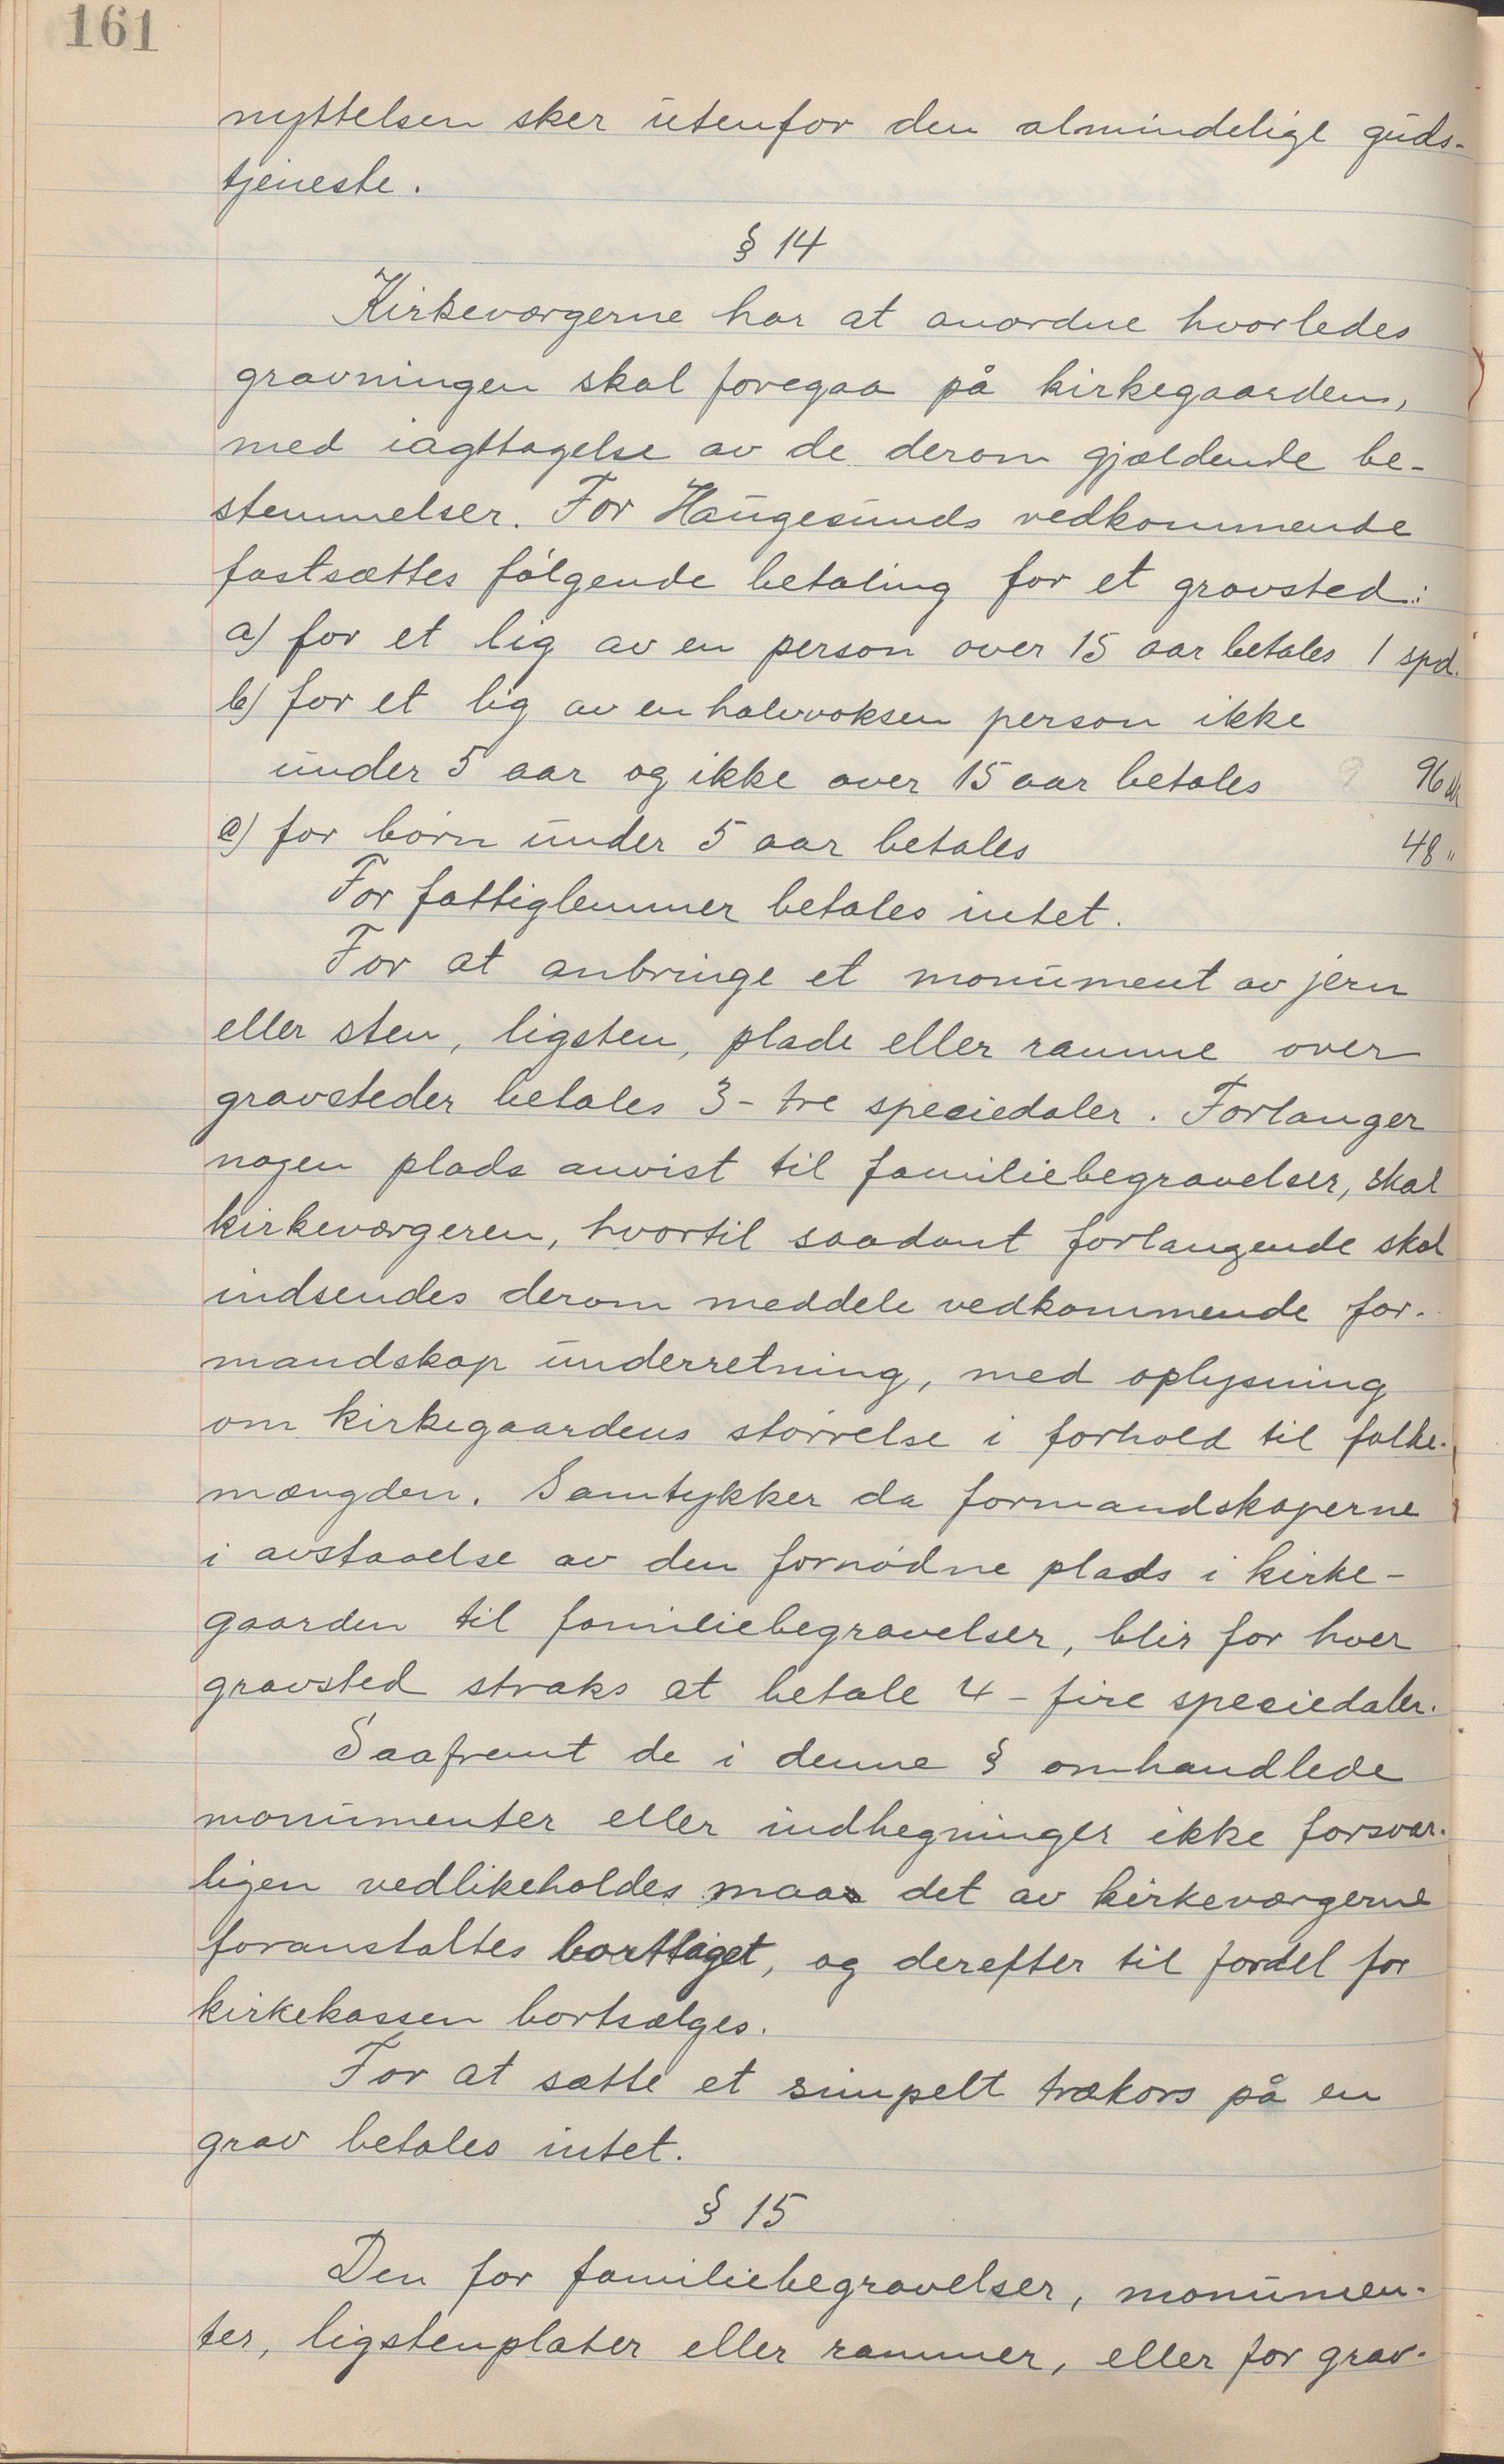 161
nyttelsen sker utenfor den almindelige guds-
tjeneste.
§ 14
Kirkeværgerne har at anordne hvorledes
gravningen skal foregaa på kirkegaarden,
med iagttagelse av de derom gjældende be-
stemmelser. For Haugesunds vedkommende
fastsættes følgende betaling for et gravsted:
a) for et lig av en person over 15 aar betales 1 spd.
b) for et lig av en halvvoksen person ikke
under 5 aar og ikke over 15 aar betales 96
c) for børn under 5 aar betales 48 "
For fattiglemmer betales intet.
For at anbringe et monument av jern
eller sten, ligsten, plade eller ramme over
gravsteder betales 3 - tre speciedaler. Forlanger
nogen plads anvist til familiebegravelser, skal
kirkeværgeren, hvortil saadant forlangende skal
indsendes derom meddele vedkommende for-
mandskap underretning, med oplysning
om kirkegaardens størrelse i forhold til folke-
mængden. Samtykker da formandskaperne
i avstaaelse av den fornødne plads i kirke-
gaarden til familiebegravelser, blir for hver
gravsted straks at betale 4 - fire speciedaler.
Saafremt de i denne § omhandlede
monumenter eller indhegninger ikke forsvar-
ligen vedlikeholdes maa det av kirkeværgerne
foranstaltes borttaget, og derefter til fordel for
kirkekassen bortsælges.
For at sætte et simpelt trækors på en
grav betales intet.
§ 15
Den for familiebegravelser, monumen-
ter, ligstenplater eller rammer, eller for grav-